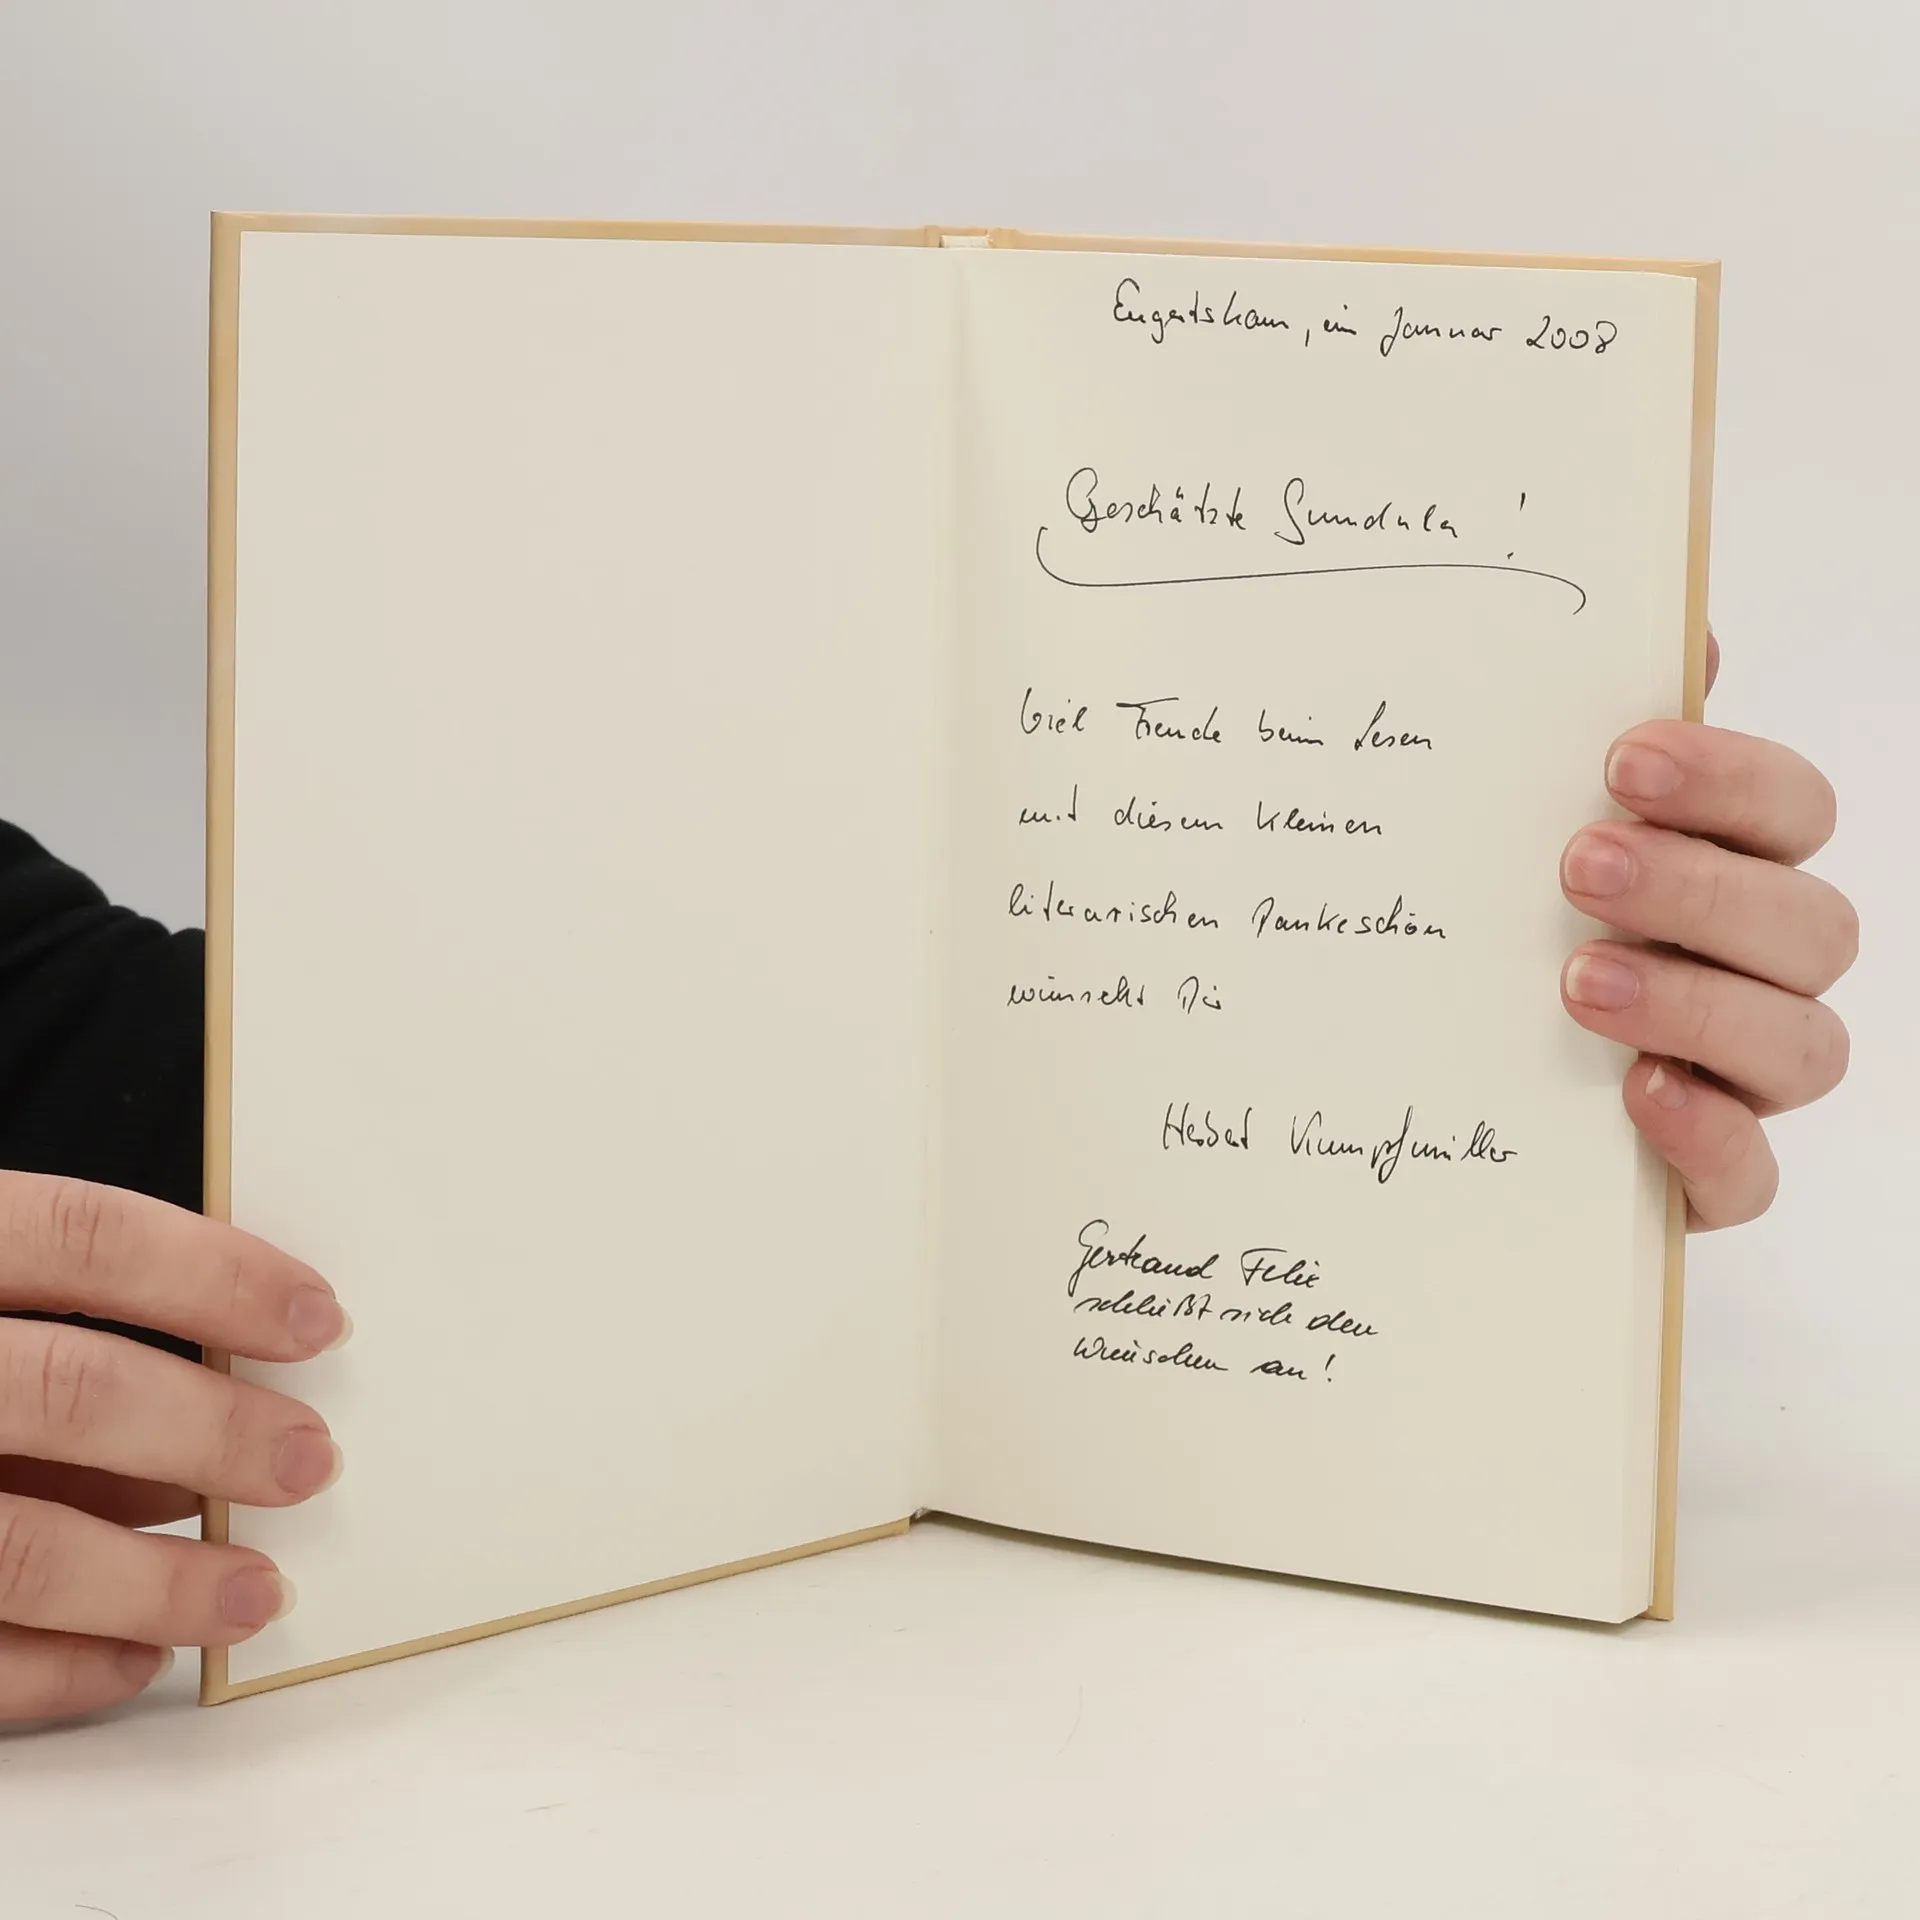 Engertsham, im Januar 2008
Geschätzte Gundula !
Viel Freude beim Lesen
mit diesem kleinen
literarischen Dankeschön
wünscht Dir
Herbert Kumpfmüller
Gertraud Felix
schließt sich den
Wünschen an !